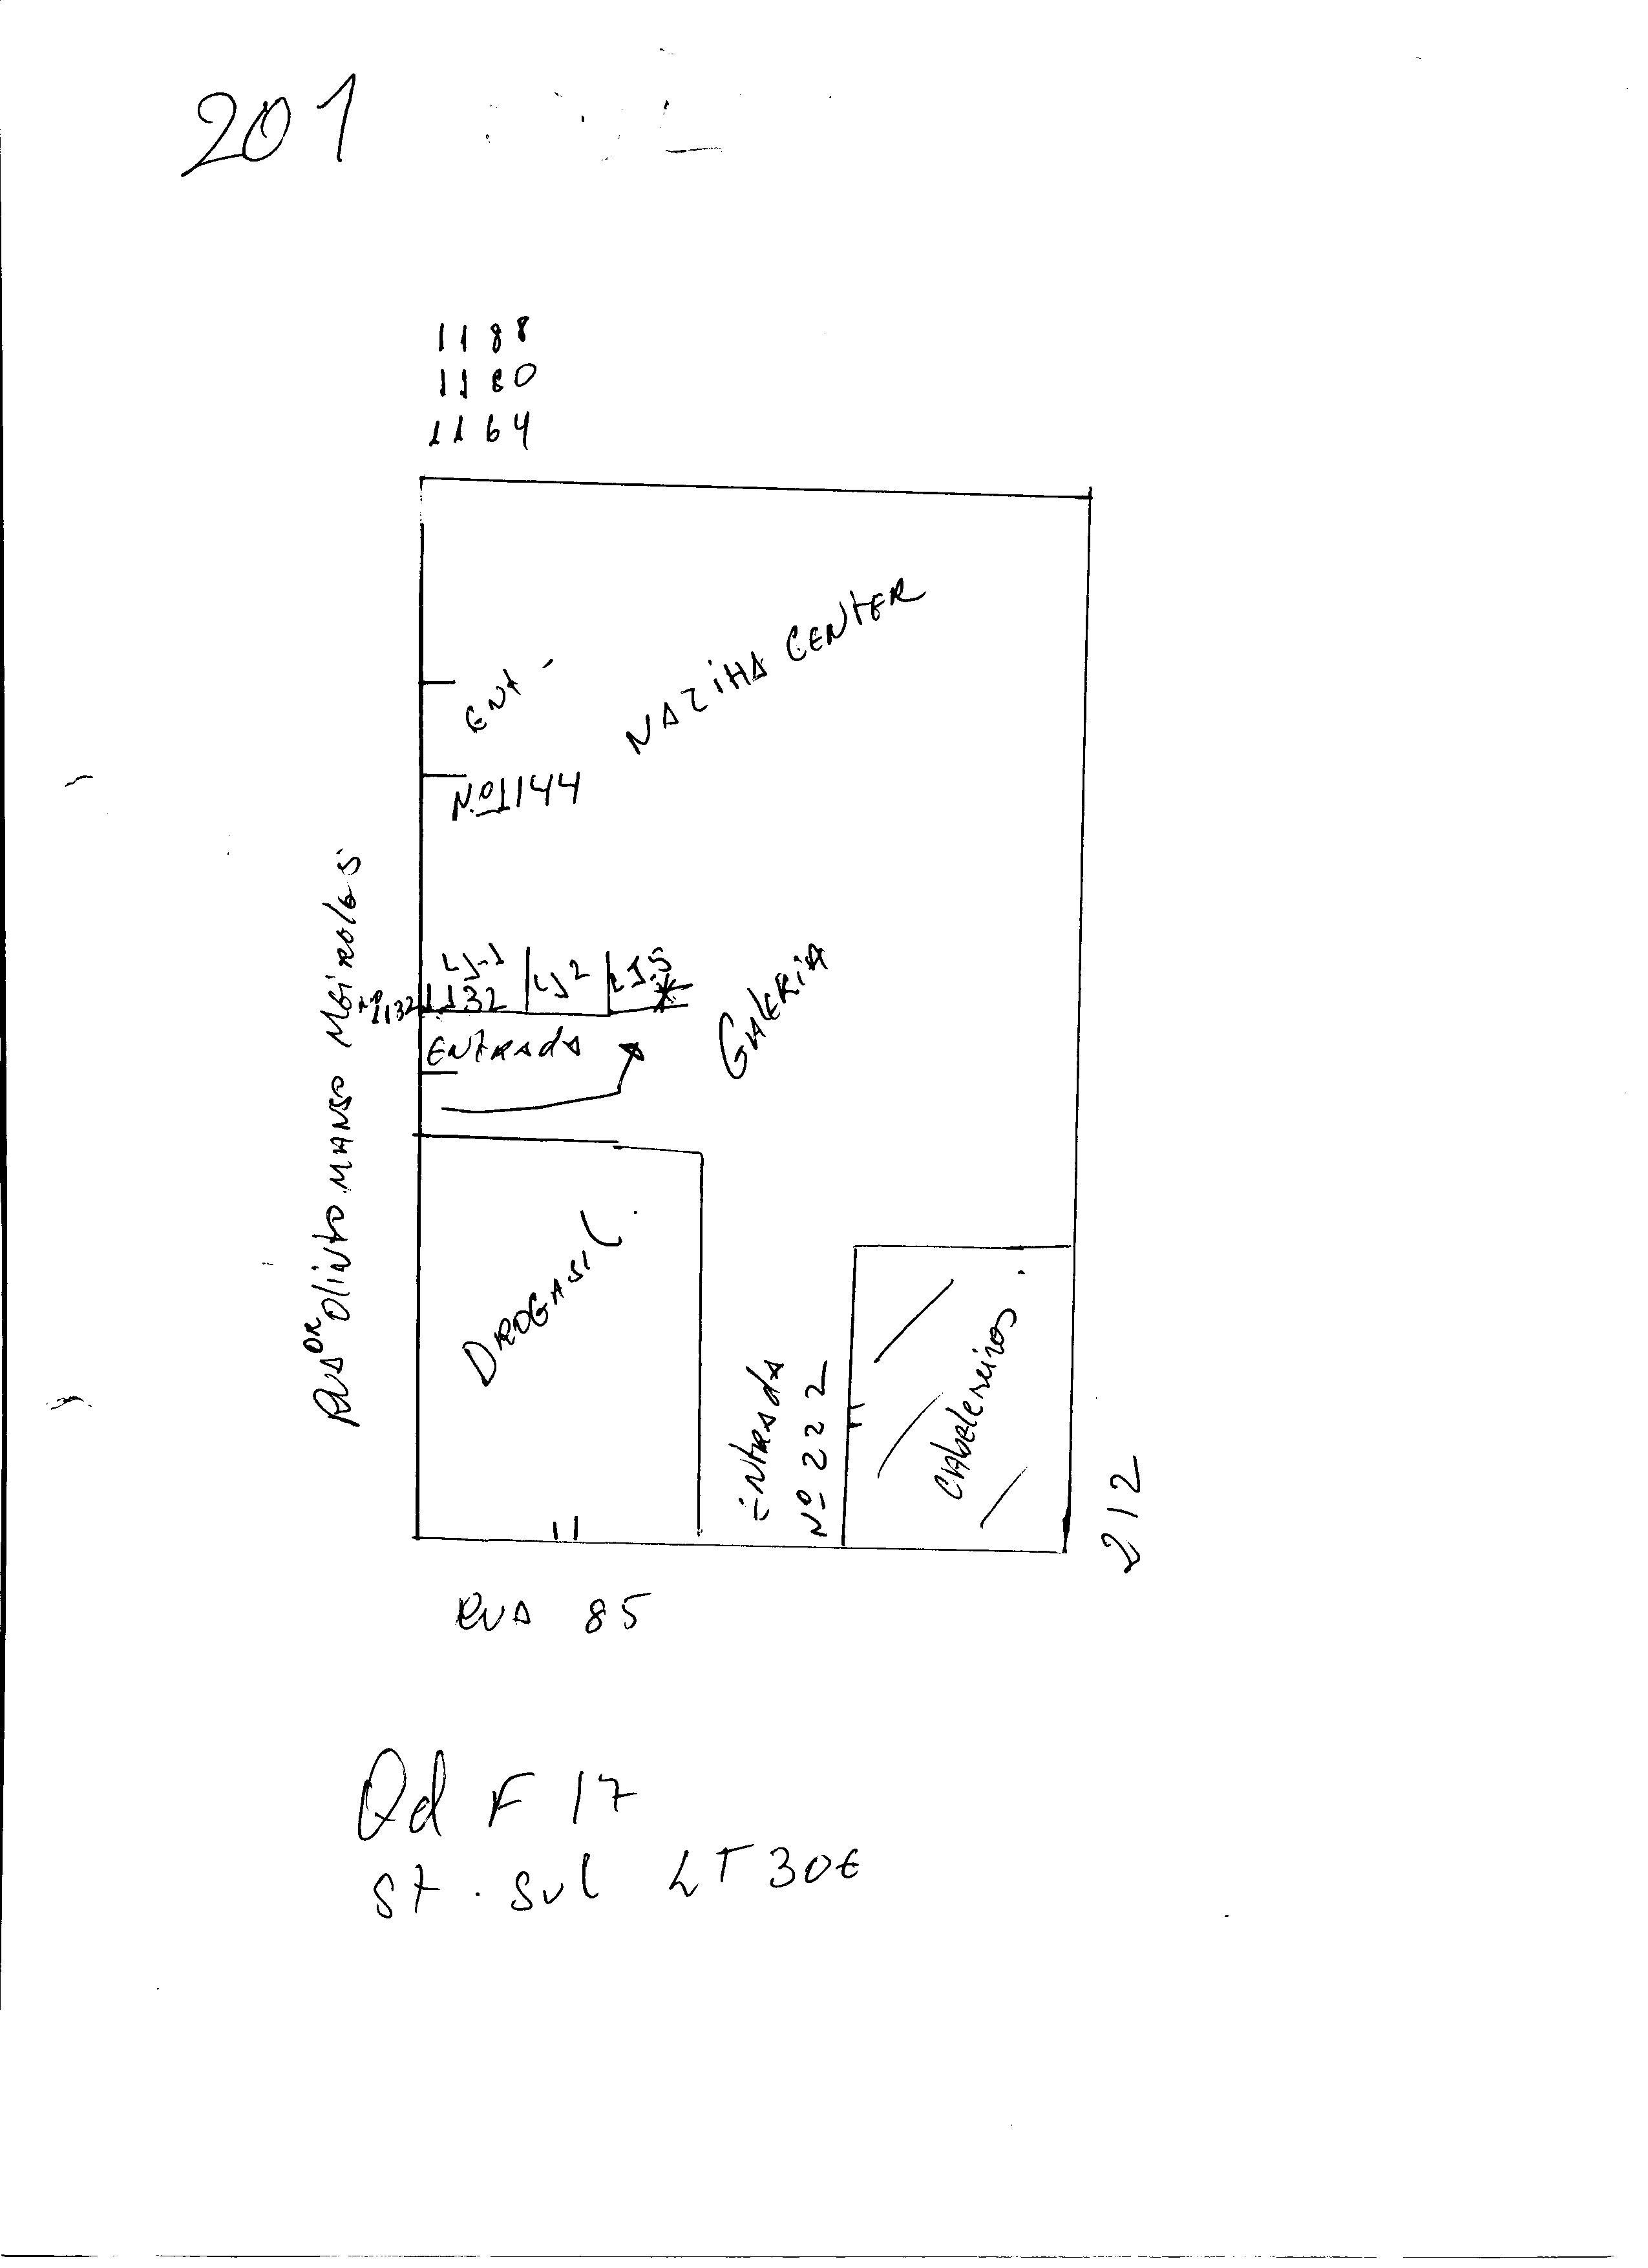 201
1188
1180
1164
ENT
NAZIHA CENTER
Nº 1144
LJ-1
LJ 2
LJ.5
Nº 1132
1132
ENTRADA
GALERIA
RUA DR OLINTO MANSO
DROGASIL
ENTRADA
Nº 222
CABELEIREIROS
212
RUA 85
Qd F 17
St. Sul LT 30E